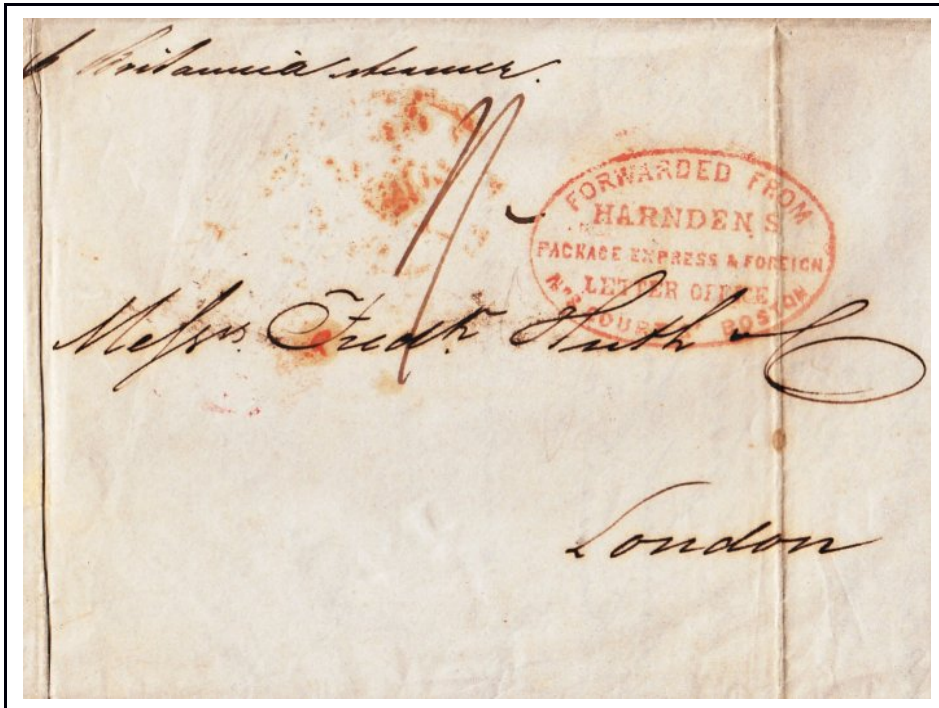 Britannia steamer.
FORWARDED FROM
HARNDEN'S
PACKAGE EXPRESS & FOREIGN
LETTER OFFICE
COURT ST BOSTON
Messrs. Fredk. Huth & Co
London